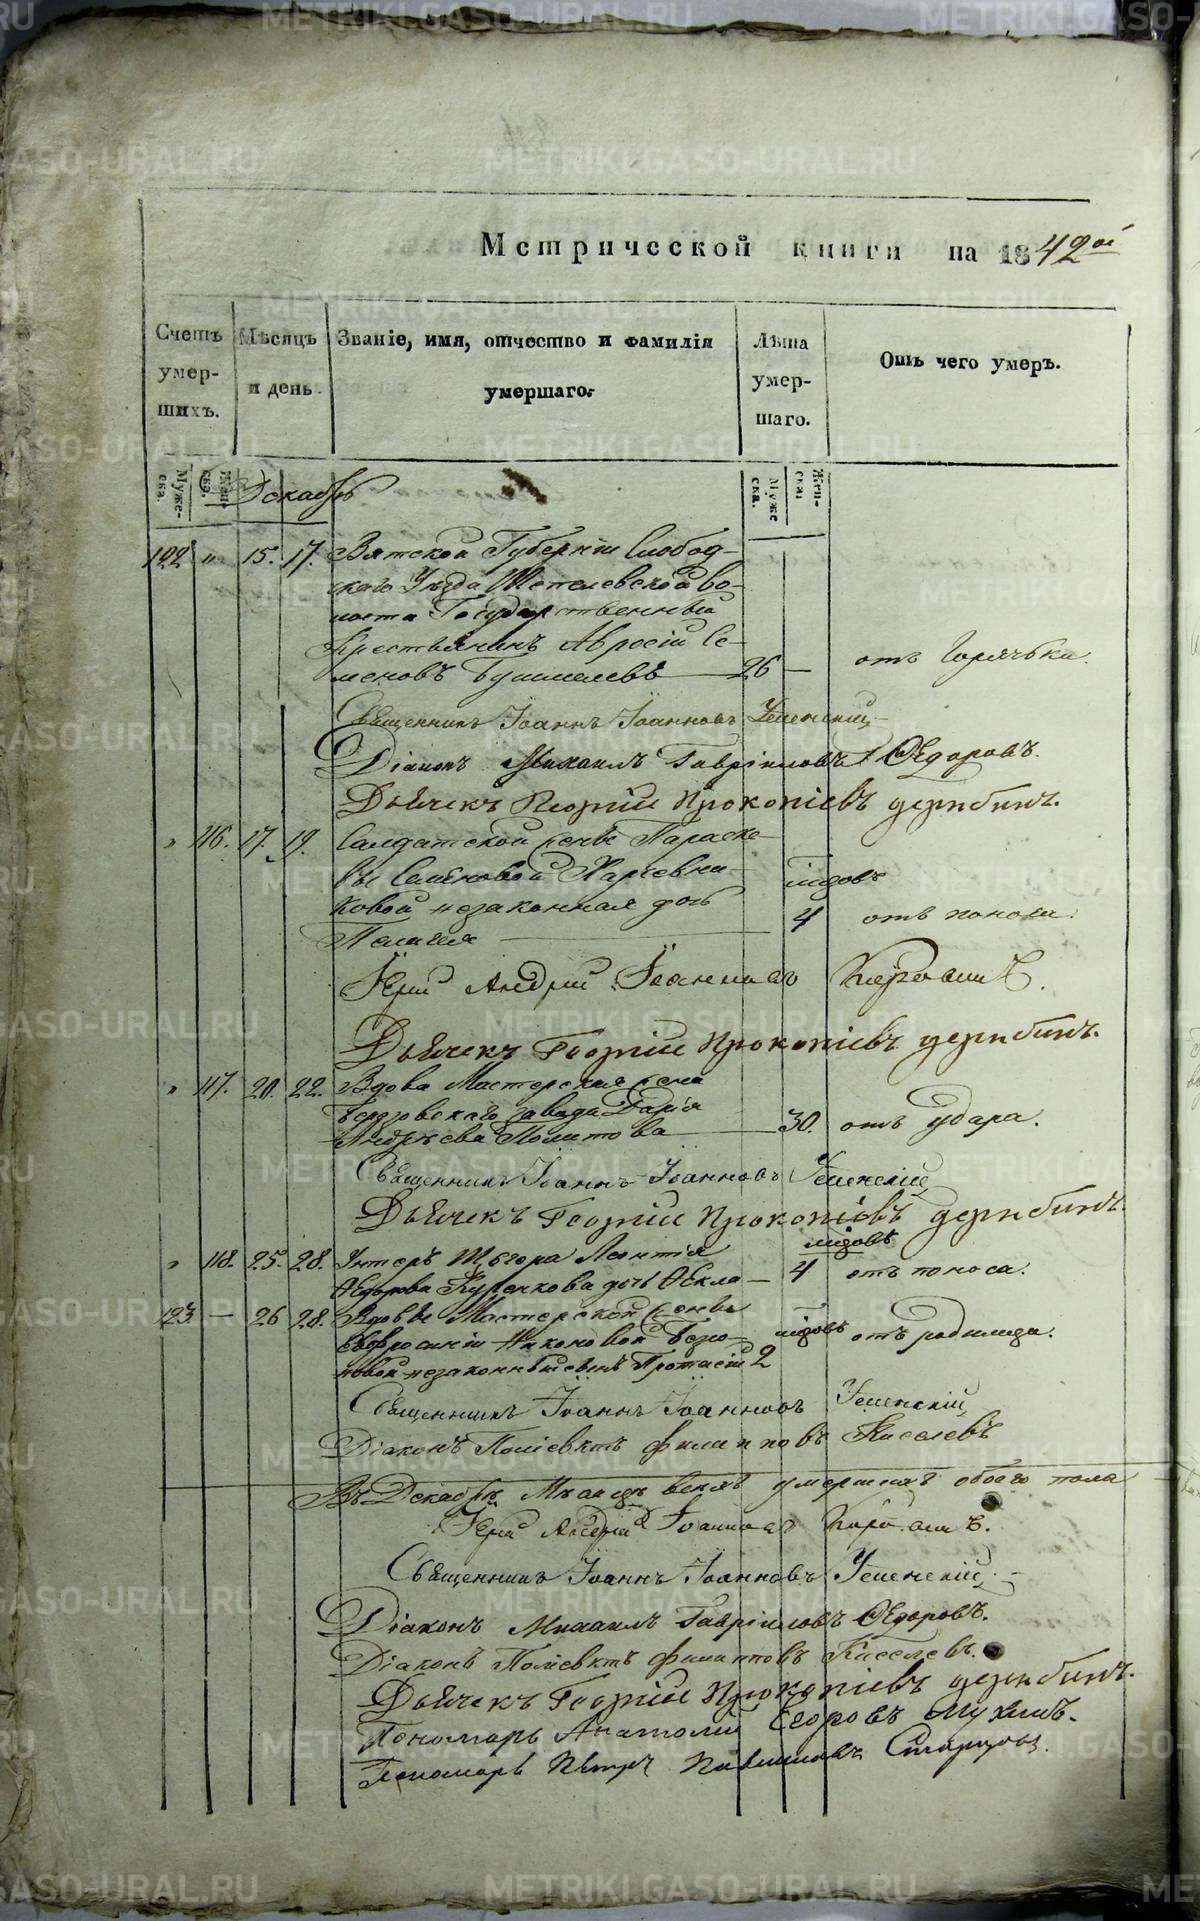 Метрической книги на 1842ой
Счетъ умер-шихъ.
Мѣсяцъ и день.
Званіе, имя, отчество и фамилія умершаго.
Лѣта умер-шаго.
Отъ чего умеръ.
Муже-ска. Жен-ска. Муже-ска. Жен-ска.
Декабрь
122 " 15. 17. Вятской Губерніи Слобод-
скаго Уѣзда
лости Государственный
Крестьянинъ Авросій Се-
меновъ 26 — отъ Горячьки.
Священникъ Іоаннъ Іоанновъ Успенскій
Діаконъ Михаилъ Гавріиловъ Ѳедоровъ.
Дьячекъ Георгій Прокопіевъ
" 116. 17. 19. Салдатской женѣ Параске-
вы Семеновой
ковой незаконная дочь мѣсяцовъ
Пелагея 4 отъ поноса.
Іерей Андрей Іоанновъ
Дьячекъ Георгій Прокопіевъ
" 117. 20. 22. Вдова Мастерская жена
Березовскаго завода Дарія
Андрѣева 30. отъ удара.
Священникъ Іоаннъ Іоанновъ Успенскій
Дьячекъ Георгій Прокопіевъ
" 118. 25. 28. Унтеръ Леонтія
Ѳедорова Куренкова дочь Ѳекла — 4 отъ поноса.
123 — 26 28. Вдовѣ Мастерской женѣ
Евфросиніи Никоновой
новой незаконный сынъ Протасій 2 отъ родимца.
Священникъ Іоаннъ Іоанновъ Успенскій
Діаконъ Поліевктъ Филипповъ Киселевъ
Въ Декабрѣ Мѣсяцѣ всехъ умершихъ обоего пола
Іерей Андрей Іоанновъ
Священникъ Іоаннъ Іоанновъ Успенскій
Діаконъ Михаилъ Гавріиловъ Ѳедоровъ.
Діаконъ Поліевктъ Филипповъ Киселевъ.
Дьячекъ Георгій Прокопіевъ
Пономарь Анатолій Егоровъ Мухинъ.
Пономарь Петръ